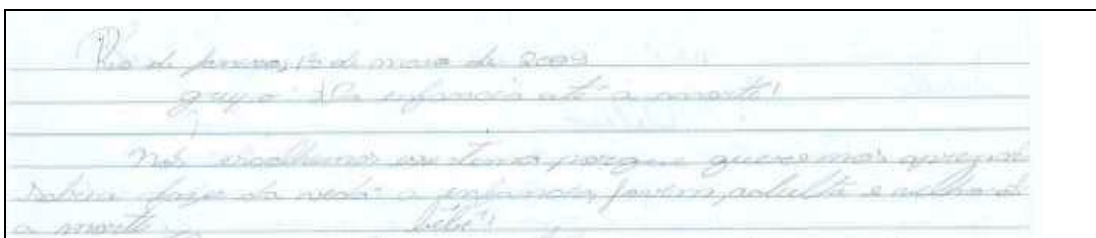 Rio de janeiro, 15 de maio de 2009
grupo: Da enfancia até a morte!
Nós escolhemos esse tema porque queremos
sobre fase da vida: a enfancia, jovem, adulto e velho até
a morte bêbê!